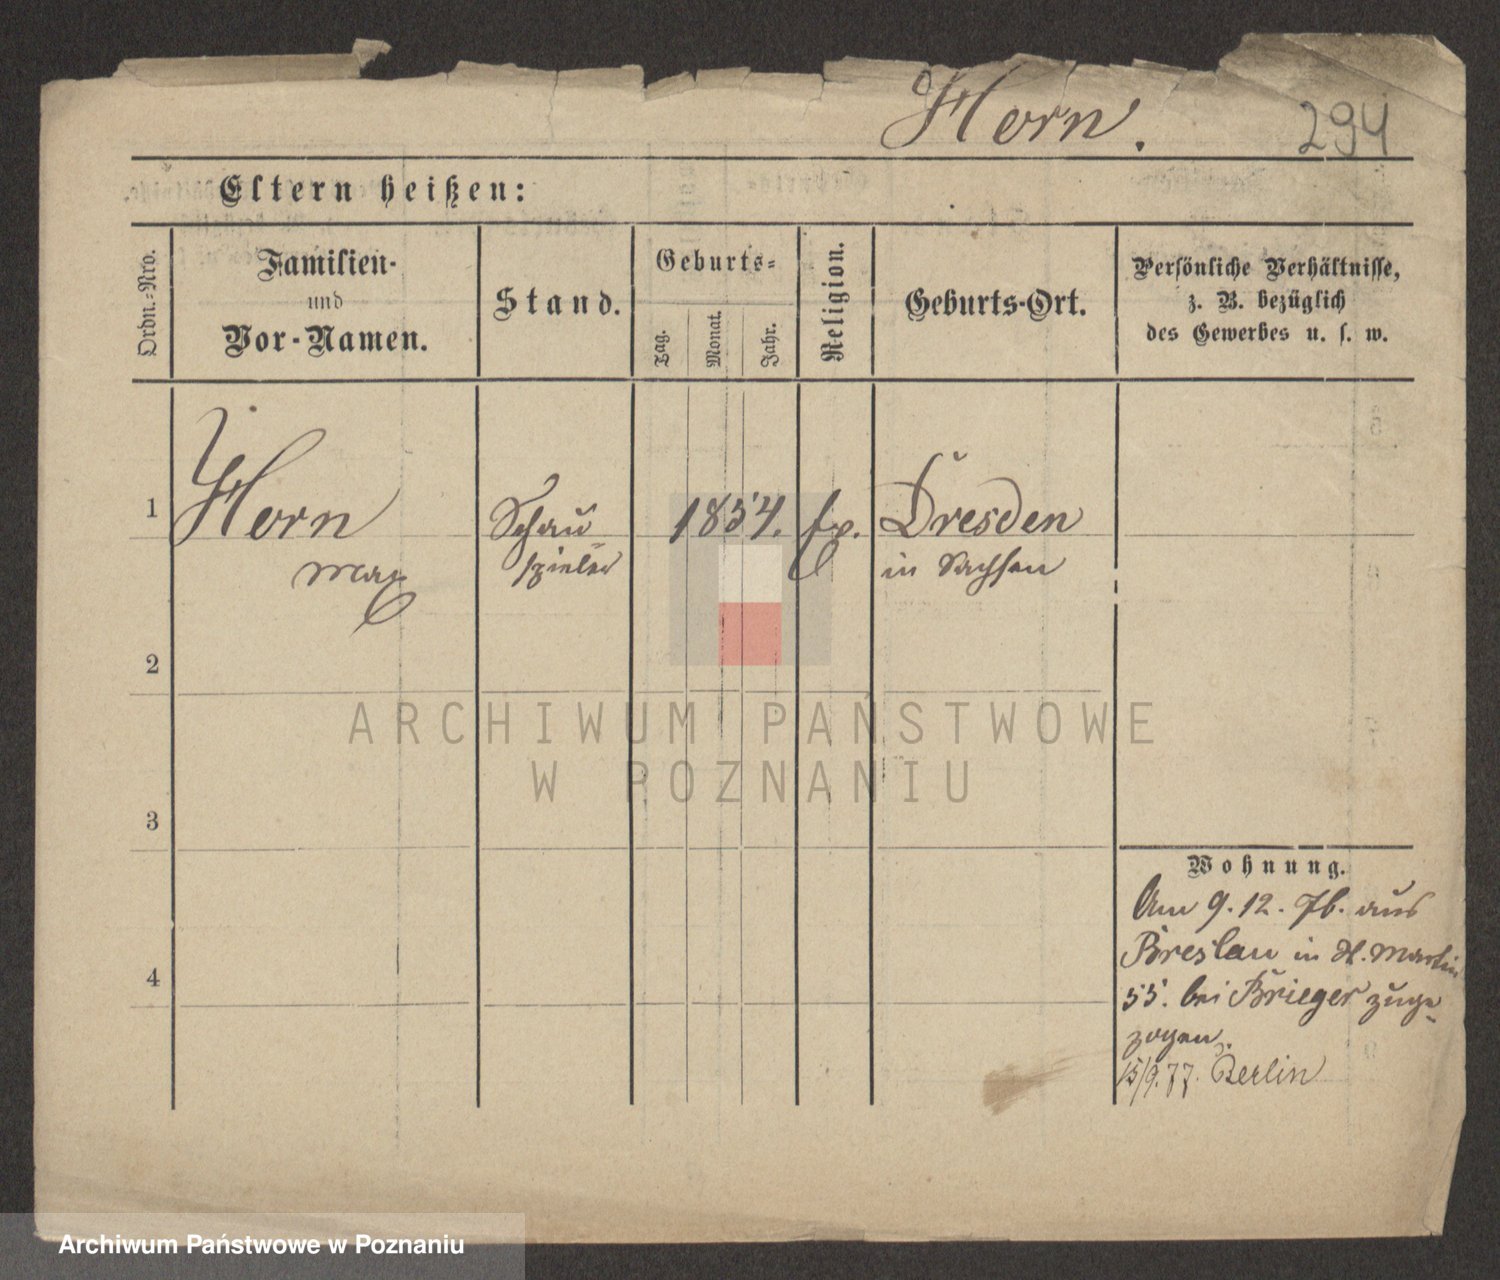 Horn. 294
Eltern heißen:
Ordn.-Nro.
Familien-
und
Vor-Namen.
Stand.
Geburts-
Tag.
Monat.
Jahr.
Religion.
Geburts-Ort.
Persönliche Verhältnisse,
z. B. bezüglich
des Gewerbes u. s. w.
1 Horn Schau- 1854. Dresden
Max spieler in Sachsen
2
3
4
Wohnung.
Am 9. 12. 76. aus
Breslau in St. Martin
55. bei Brieger zuge-
zogen.
15/9. 77. Berlin
ARCHIWUM PAŃSTWOWE
W POZNANIU
Archiwum Państwowe w Poznaniu